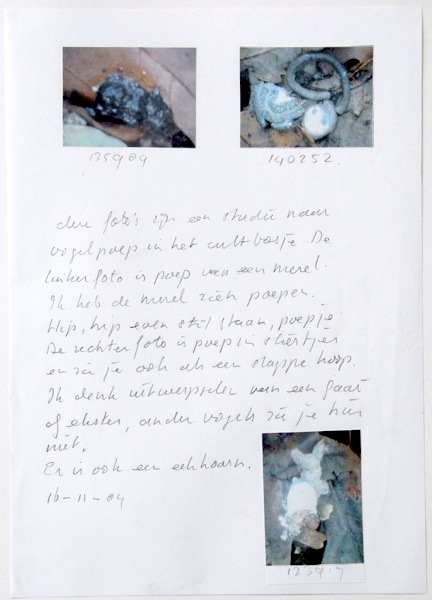 135909
140252.
deze foto's zijn een studie naar
vogelpoep in het cultbosje De
linkerfoto is poep van een merel.
Ik heb de merel zien poepen.
Hip, hip even stil staan, poepje.
De rechterfoto is poep in sliertjes
en zie je ook als een slappe hoop.
Ik denk uitwerpselen van een gaai
of ekster, ander vogels zie je hier
niet.
Er is ook een eekhoorn.
16-11-04